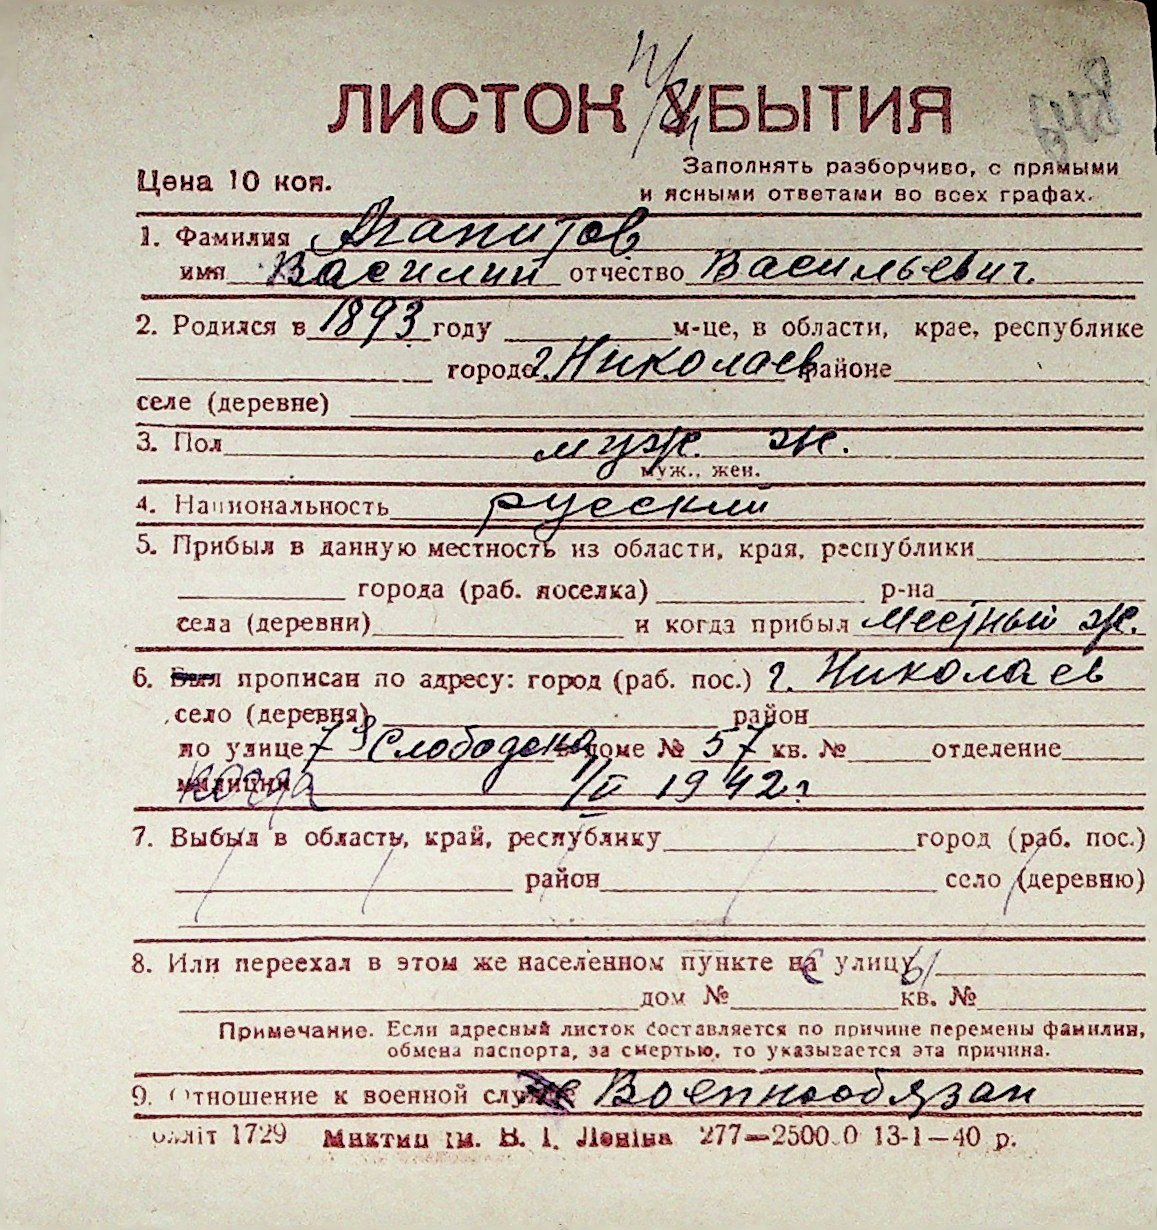 ЛИСТОК УБЫТИЯ
Цена 10 коп.
Заполнять разборчиво, с прямыми
и ясными ответами во всех графах.
1. Фамилия Агапитов
имя Василий отчество Васильевич.
2. Родился в 1893 году м-це, в области, крае, республике
городе г. Николаев районе
селе (деревне)
3. Пол муж. ж.
муж., жен.
4. Национальность русский
5. Прибыл в данную местность из области, края, республики
города (раб. поселка) р-на
села (деревни) и когда прибыл местный ж.
6. Был прописан по адресу: город (раб. пос.) г. Николаев
село (деревня) район
по улице 7 Слободска в доме № 57 кв. № отделение
милиции когда 1/V 1942 г
7. Выбыл в область, край, республику город (раб. пос.)
район село (деревню)
8. Или переехал в этом же населенном пункте на улицу
дом № кв. №
Примечание. Если адресный листок составляется по причине перемены фамилии,
обмена паспорта, за смертью, то указывается эта причина.
9. Отношение к военной службе Военнообязан
Обліт 1729 Миктип ім. В. І. Леніна 277—2500.0 13-1—40 р.